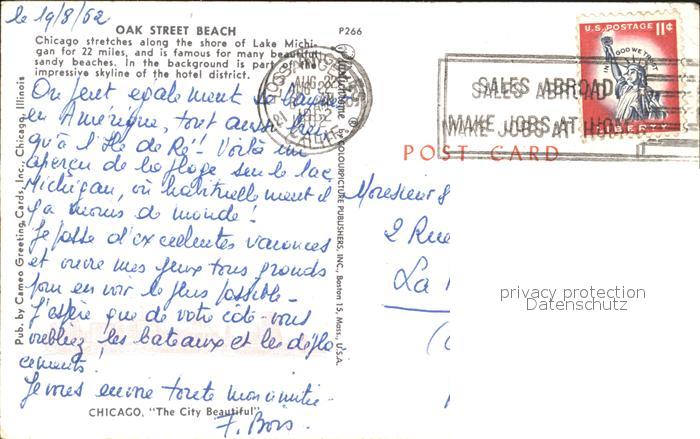 le 19/8/62
OAK STREET BEACH
P266
Chicago stretches along the shore of Lake Michi-
gan for 22 miles, and is famous for many beautiful
sandy beaches. In the background is part of the
impressive skyline of the hotel district.
On peut également se baigner
en Amérique, tout aussi bien
qu'à l'Ile de Ré! Voilà un
aperçu de la plage sur le lac
Michigan, où habituellement il
y a moins de monde!
Je passe d'excellentes vacances
et ouvre mes yeux tous grands
pour en voir le plus possible -
J'espère que de votre côté vous
oubliez les bateaux et les dépla
cements!
Je vous envoie toute mon amitié.
F. Bois.
CHICAGO, "The City Beautiful"
Pub. by Cameo Greeting Cards, Inc., Chicago, Illinois
by COLOURPICTURE PUBLISHERS, INC., Boston 15, Mass., U.S.A.
AUG 22
CALIF
SALES ABROAD
MAKE JOBS AT HOME
U.S. POSTAGE 11¢
IN GOD WE TRUST
LIBERTY
POST CARD
Monsieur
2 Rue
La
privacy protection
Datenschutz